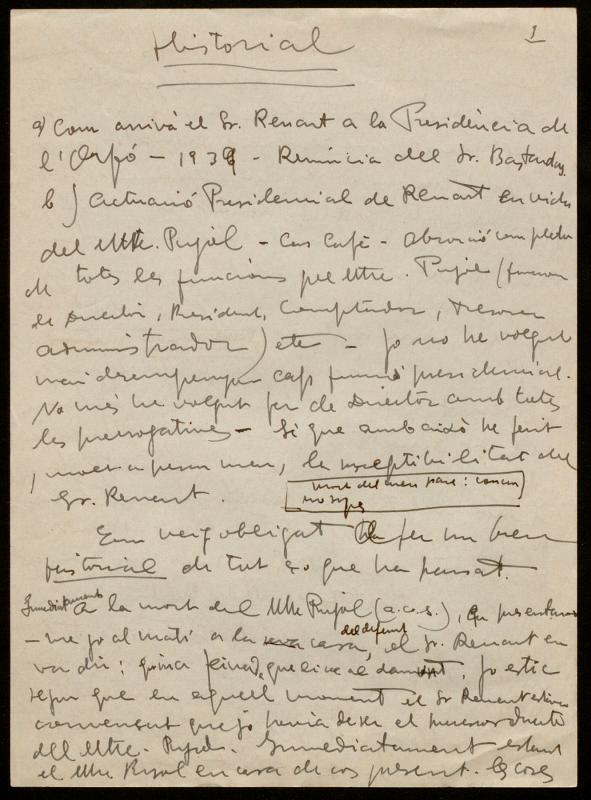 1
Historial
a) Com arrivà el Sr. Renart a la Presidència de
l'Orfó - 1936 - Renúncia del Sr. Bastardas.
b) Actuació Presidencial de Renart en vida
del Mtre. Pujol - Cas Cafè - absorció completa
de totes les funcions pel Mtre. Pujol (funcions
de Director, President, Comptador, tresorer
administrador) etc - Jo no he volgut
mai desempenyar cap funció presidencial.
No més he volgut fer de Director amb totes
les prerrogatives - Si que amb això he ferit
, molt a pesar meu, la susceptibilitat del
Sr. Renart.
mort del meu pare:
no sigué
Em veig obligat a fer un breu
historial de tot ço que ha passat.
Immediatament a la mort del Mtre Pujol (a.c.s.), presentan
-me jo al matí a la casa del difunt, el Sr. Renart em
va dir: quina feinada que li cau al damunt. Jo estic
segur que en aquell moment el Sr Renart estava
convençut que jo havia de ser el successor
del Mtre. Pujol. Immediatament estant
el Mtre Pujol en casa de cos present. les coses